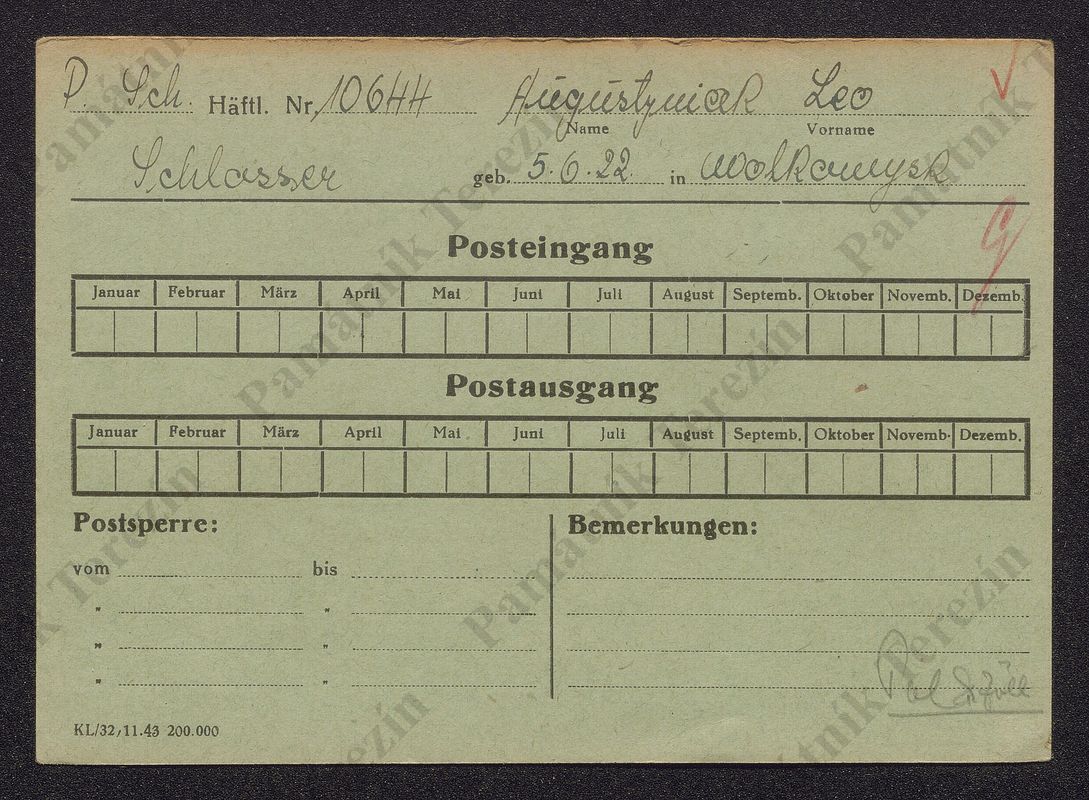 P. Sch. Häftl. Nr. 10644 Augustyniak Leo
Name Vorname
Schlosser geb. 5.6.22. in Wolkowysk
Posteingang
Januar Februar März April Mai Juni Juli August Septemb. Oktober Novemb. Dezemb.
Postausgang
Januar Februar März April Mai Juni Juli August Septemb. Oktober Novemb. Dezemb.
Postsperre: Bemerkungen:
vom bis
" "
" "
" "
KL/32/11.43 200.000
Památník Terezín